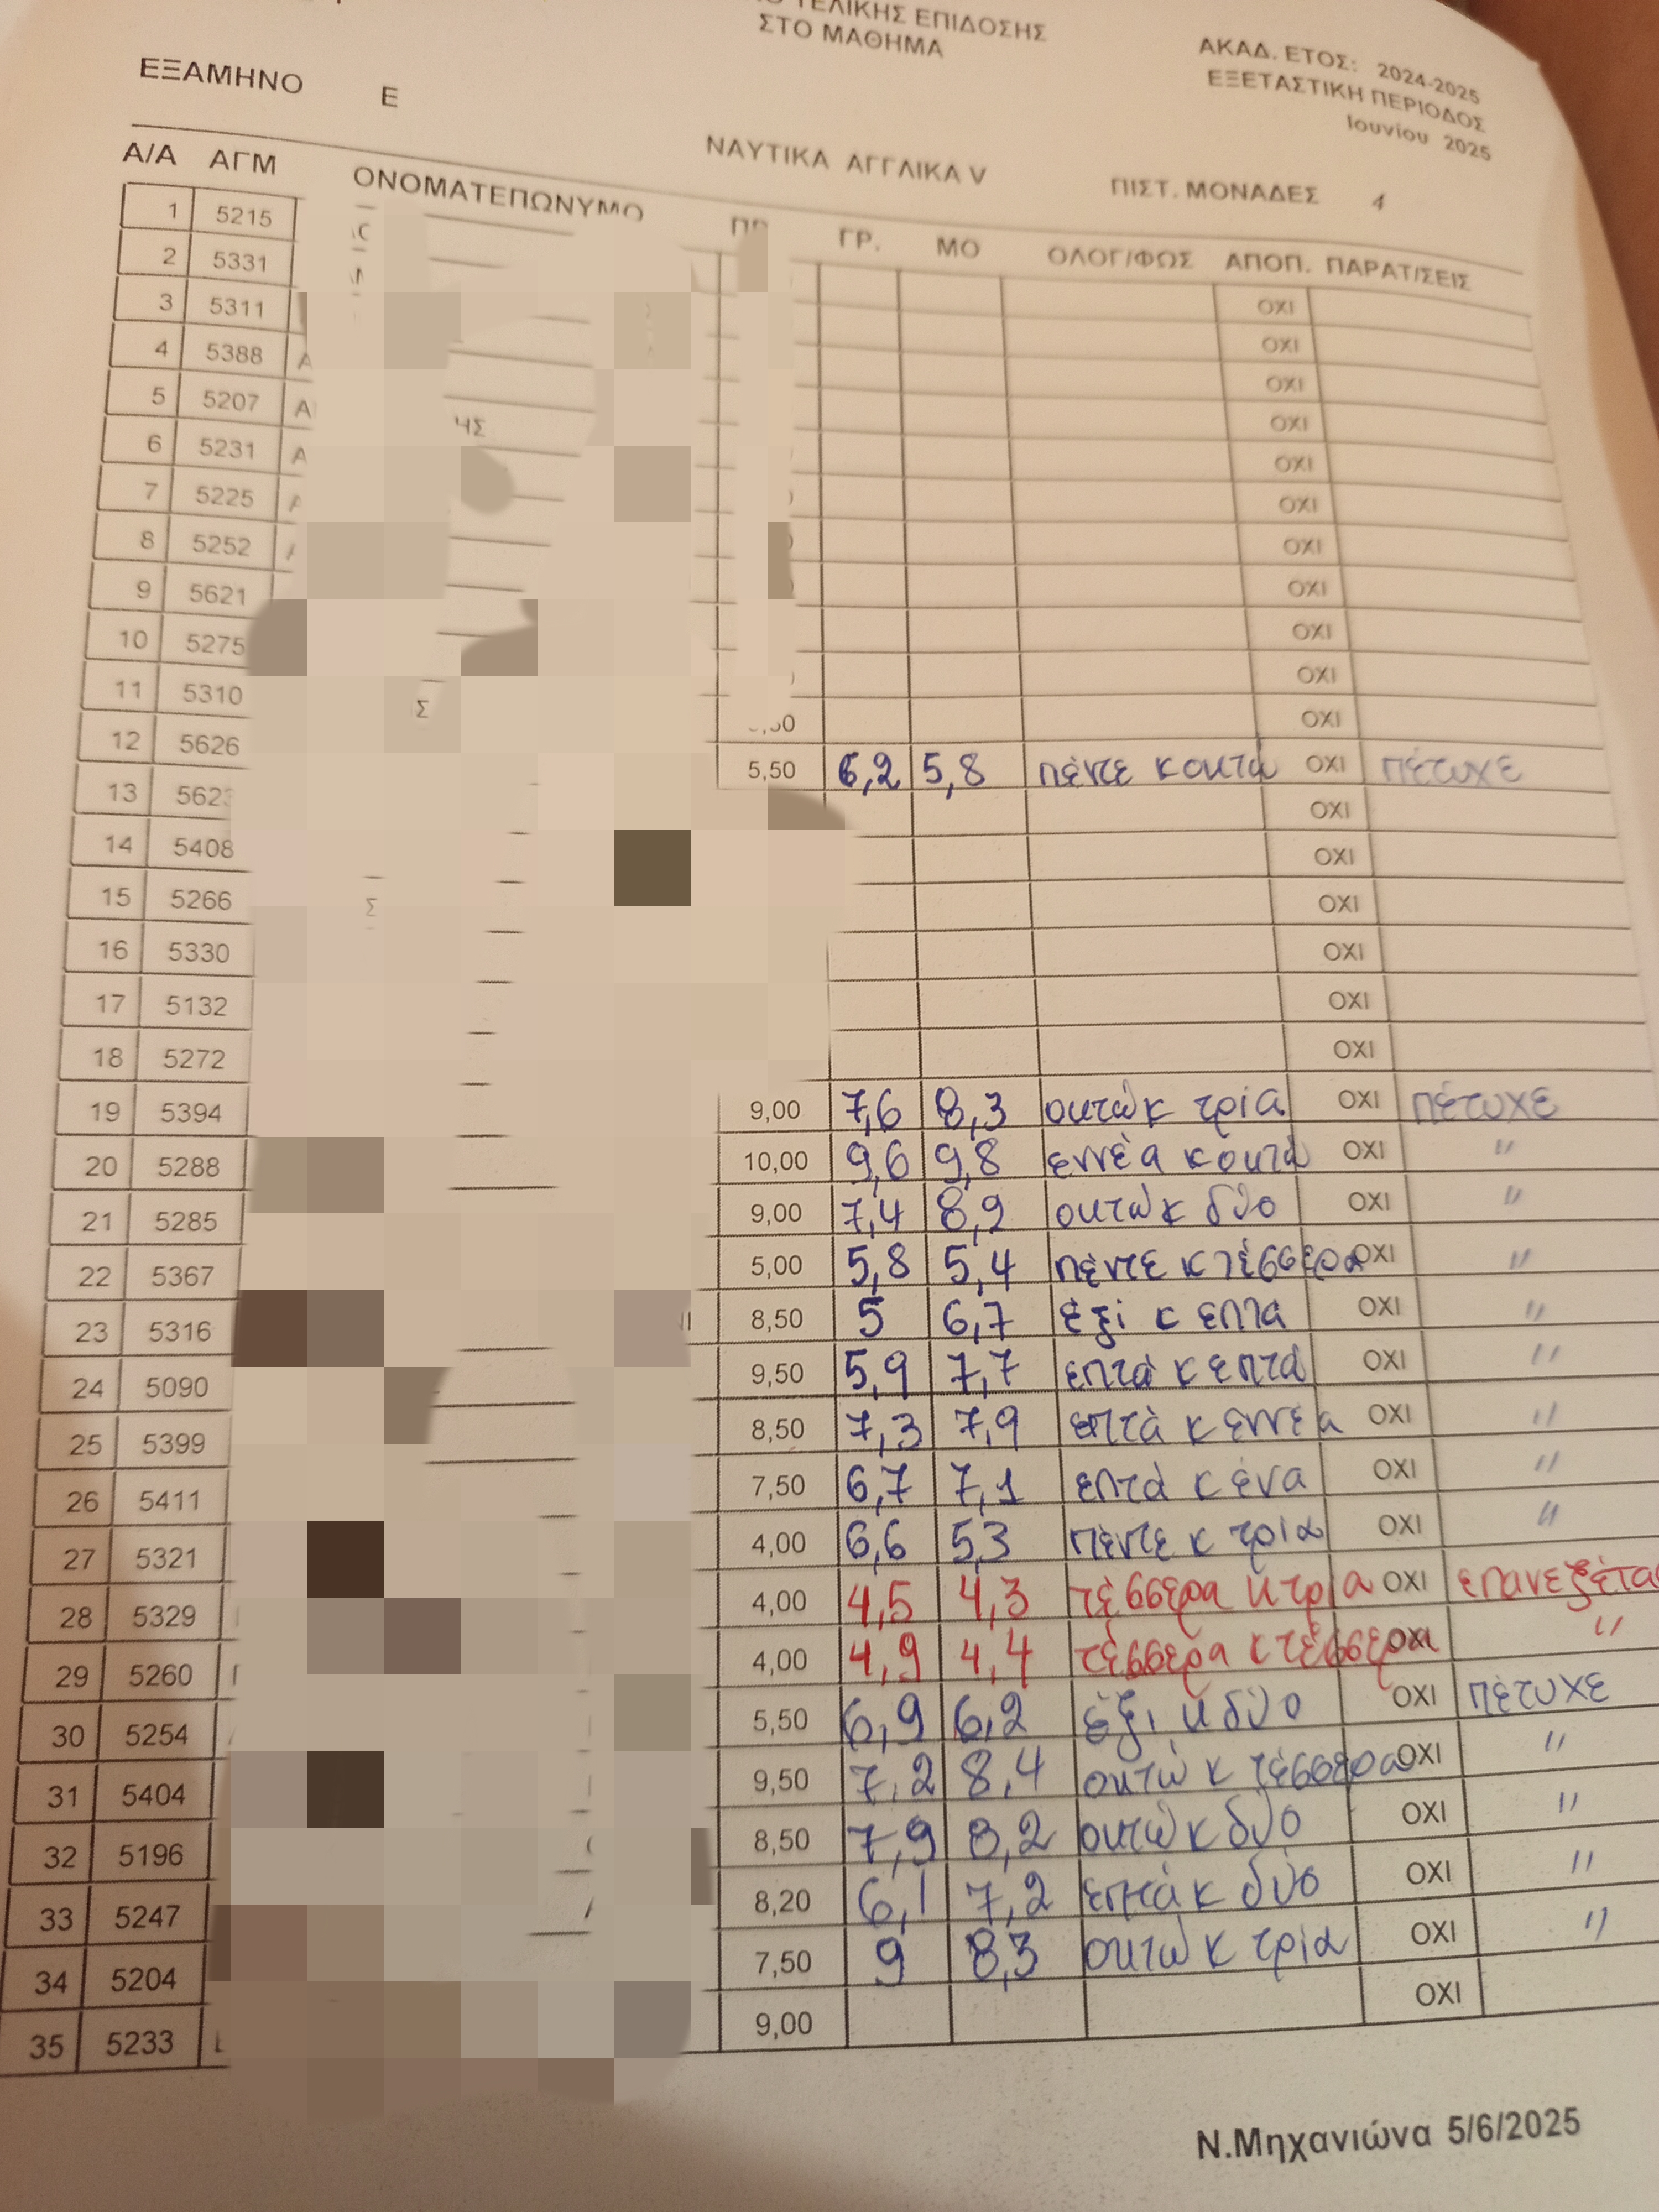 ΤΕΛΙΚΗΣ ΕΠΙΔΟΣΗΣ
ΣΤΟ ΜΑΘΗΜΑ
ΑΚΑΔ. ΕΤΟΣ: 2024-2025
ΕΞΕΤΑΣΤΙΚΗ ΠΕΡΙΟΔΟΣ
Ιουνίου 2025
ΕΞΑΜΗΝΟ Ε
ΝΑΥΤΙΚΑ ΑΓΓΛΙΚΑ V ΠΙΣΤ. ΜΟΝΑΔΕΣ 4
Α/Α ΑΓΜ ΟΝΟΜΑΤΕΠΩΝΥΜΟ ΓΡ. ΜΟ ΟΛΟΓ/ΦΩΣ ΑΠΟΠ. ΠΑΡΑΤ/ΣΕΙΣ
1 5215 ΟΧΙ
2 5331 ΟΧΙ
3 5311 ΟΧΙ
4 5388 Α ΟΧΙ
5 5207 Α ΗΣ ΟΧΙ
6 5231 Α ΟΧΙ
7 5225 ΟΧΙ
8 5252 ΟΧΙ
9 5621 ΟΧΙ
10 5275 ΟΧΙ
11 5310 Σ ,50 ΟΧΙ
12 5626 5,50 6,2 5,8 πέντε κ οκτώ ΟΧΙ πέτυχε
13 5623 ΟΧΙ
14 5408 ΟΧΙ
15 5266 Σ ΟΧΙ
16 5330 ΟΧΙ
17 5132 ΟΧΙ
18 5272 ΟΧΙ
19 5394 9,00 7,6 8,3 οκτώ κ τρία ΟΧΙ πέτυχε
20 5288 10,00 9,6 9,8 εννέα κ οκτώ ΟΧΙ "
21 5285 9,00 7,4 8,2 οκτώ κ δύο ΟΧΙ "
22 5367 5,00 5,8 5,4 πέντε κ τέσσερα ΟΧΙ "
23 5316 8,50 5 6,7 έξι κ επτά ΟΧΙ "
24 5090 9,50 5,9 7,7 επτά κ επτά ΟΧΙ "
25 5399 8,50 7,3 7,9 επτά κ εννέα ΟΧΙ "
26 5411 7,50 6,7 7,1 επτά κ ένα ΟΧΙ "
27 5321 4,00 6,6 5,3 πέντε κ τρία ΟΧΙ "
28 5329 4,00 4,5 4,3 τέσσερα κ τρία ΟΧΙ επανεξέτασ
29 5260 4,00 4,9 4,4 τέσσερα κ τέσσερα ΟΧΙ "
30 5254 5,50 6,9 6,2 έξι κ δύο ΟΧΙ πέτυχε
31 5404 9,50 7,2 8,4 οκτώ κ τέσσερα ΟΧΙ "
32 5196 8,50 7,9 8,2 οκτώ κ δύο ΟΧΙ "
33 5247 8,20 6,1 7,2 επτά κ δύο ΟΧΙ "
34 5204 7,50 9 8,3 οκτώ κ τρία ΟΧΙ "
35 5233 9,00 ΟΧΙ
Ν.Μηχανιώνα 5/6/2025